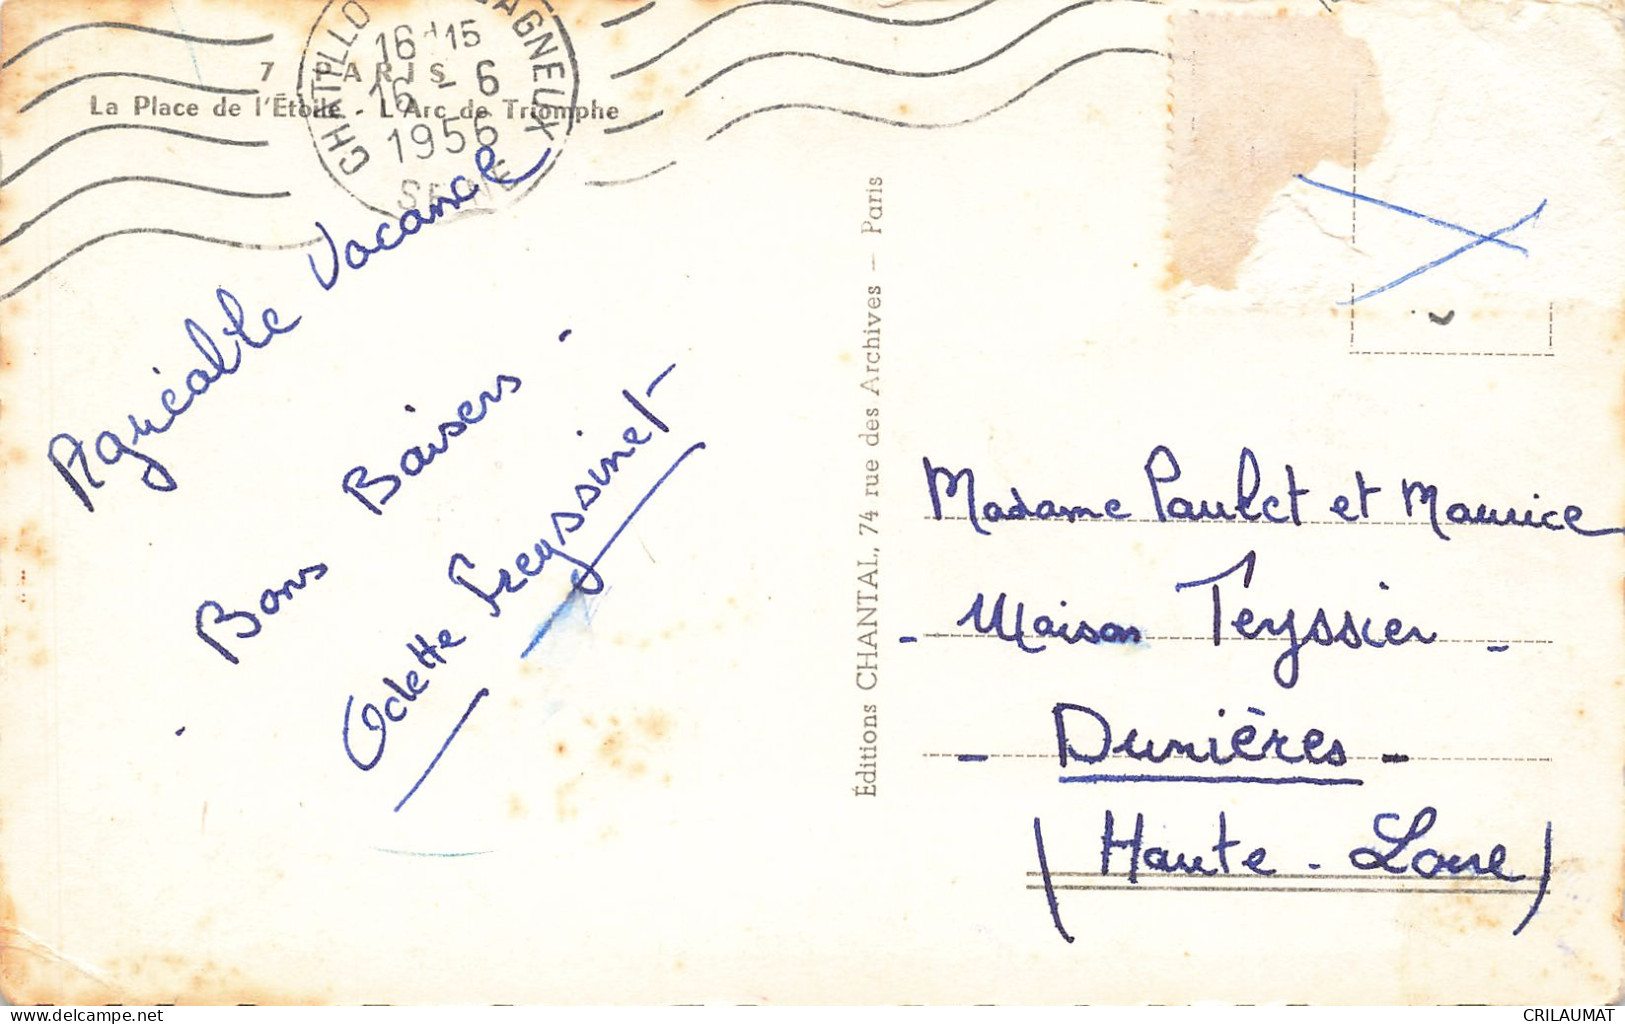 7 PARIS
La Place de l'Étoile - L'Arc de Triomphe
CHATILLON BAGNEUX
16 H 15
16 - 6
1956
SEINE
Agréable Vacance
Bons Baisers.
Odette Freyssinet
Éditions CHANTAL, 74 rue des Archives — Paris
Madame Paulet et Maurice
- Maison Teyssier -
- Dunières -
(Haute-Loire)
www.delcampe.net
CRILAUMAT